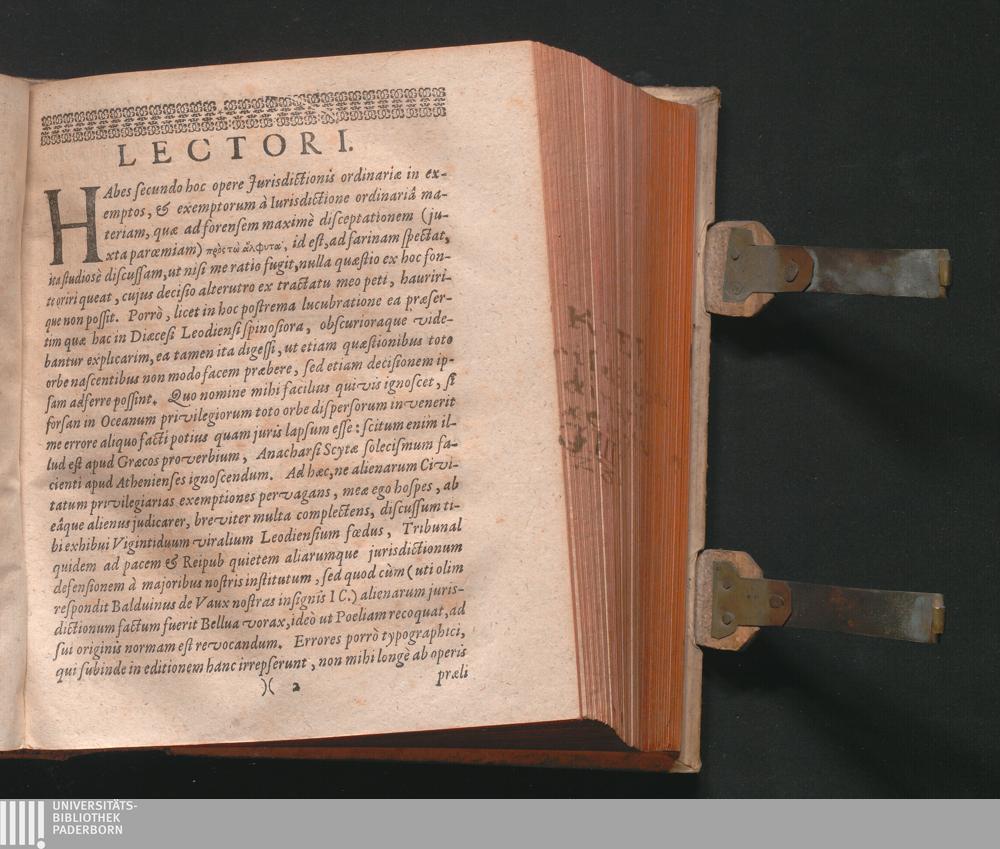 LECTORI.
HAbes ſecundo hoc opere Jurisdictionis ordinariæ in ex-
emptos, & exemptorum à Iurisdictione ordinariâ ma-
teriam, quæ ad forenſem maximè diſceptationem (ju-
xta parœmiam) πρὸς τὼ ἄλφυτα, id eſt, ad farinam ſpectat,
ita ſtudiosè diſcuſſam, ut niſi me ratio fugit, nulla quæſtio ex hoc fon-
te oriri queat, cujus deciſio alterutro ex tractatu meo peti, hauriri-
que non poſſit. Porrò, licet in hoc poſtrema lucubratione ea præſer-
tim quæ hac in Diœceſi Leodienſi ſpinoſiora, obſcurioraque vide-
bantur explicarim, ea tamen ita digeſſi, ut etiam quæſtionibus toto
orbe naſcentibus non modo facem præbere, ſed etiam deciſionem ip-
ſam adferre poſſint. Quo nomine mihi facilius quivis ignoſcet, ſi
forſan in Oceanum privilegiorum toto orbe diſperſorum invenerit
me errore aliquo facti potius quam juris lapſum eſſe: ſcitum enim il-
lud eſt apud Græcos proverbium, Anacharſi Scytæ ſoleciſmum fa-
cienti apud Athenienſes ignoſcendum. Ad hæc, ne alienarum Civi-
tatum privilegiarias exemptiones pervagans, meæ ego hoſpes, ab
eâque alienus judicarer, breviter multa complectens, diſcuſſum ti-
bi exhibui Vigintiduum viralium Leodienſium fœdus, Tribunal
quidem ad pacem & Reipub quietem aliarumque jurisdictionum
defenſionem à majoribus noſtris inſtitutum, ſed quod cùm (uti olim
reſpondit Balduinus de Vaux noſtras inſignis I C.) alienarum juris-
dictionum factum fuerit Bellua vorax, ideò ut Poeliam recoquat, ad
ſui originis normam eſt revocandum. Errores porrò typographici,
qui ſubinde in editionem hanc irrepſerunt, non mihi longè ab operis
)( 2 præli
UNIVERSITÄTS-
BIBLIOTHEK
PADERBORN